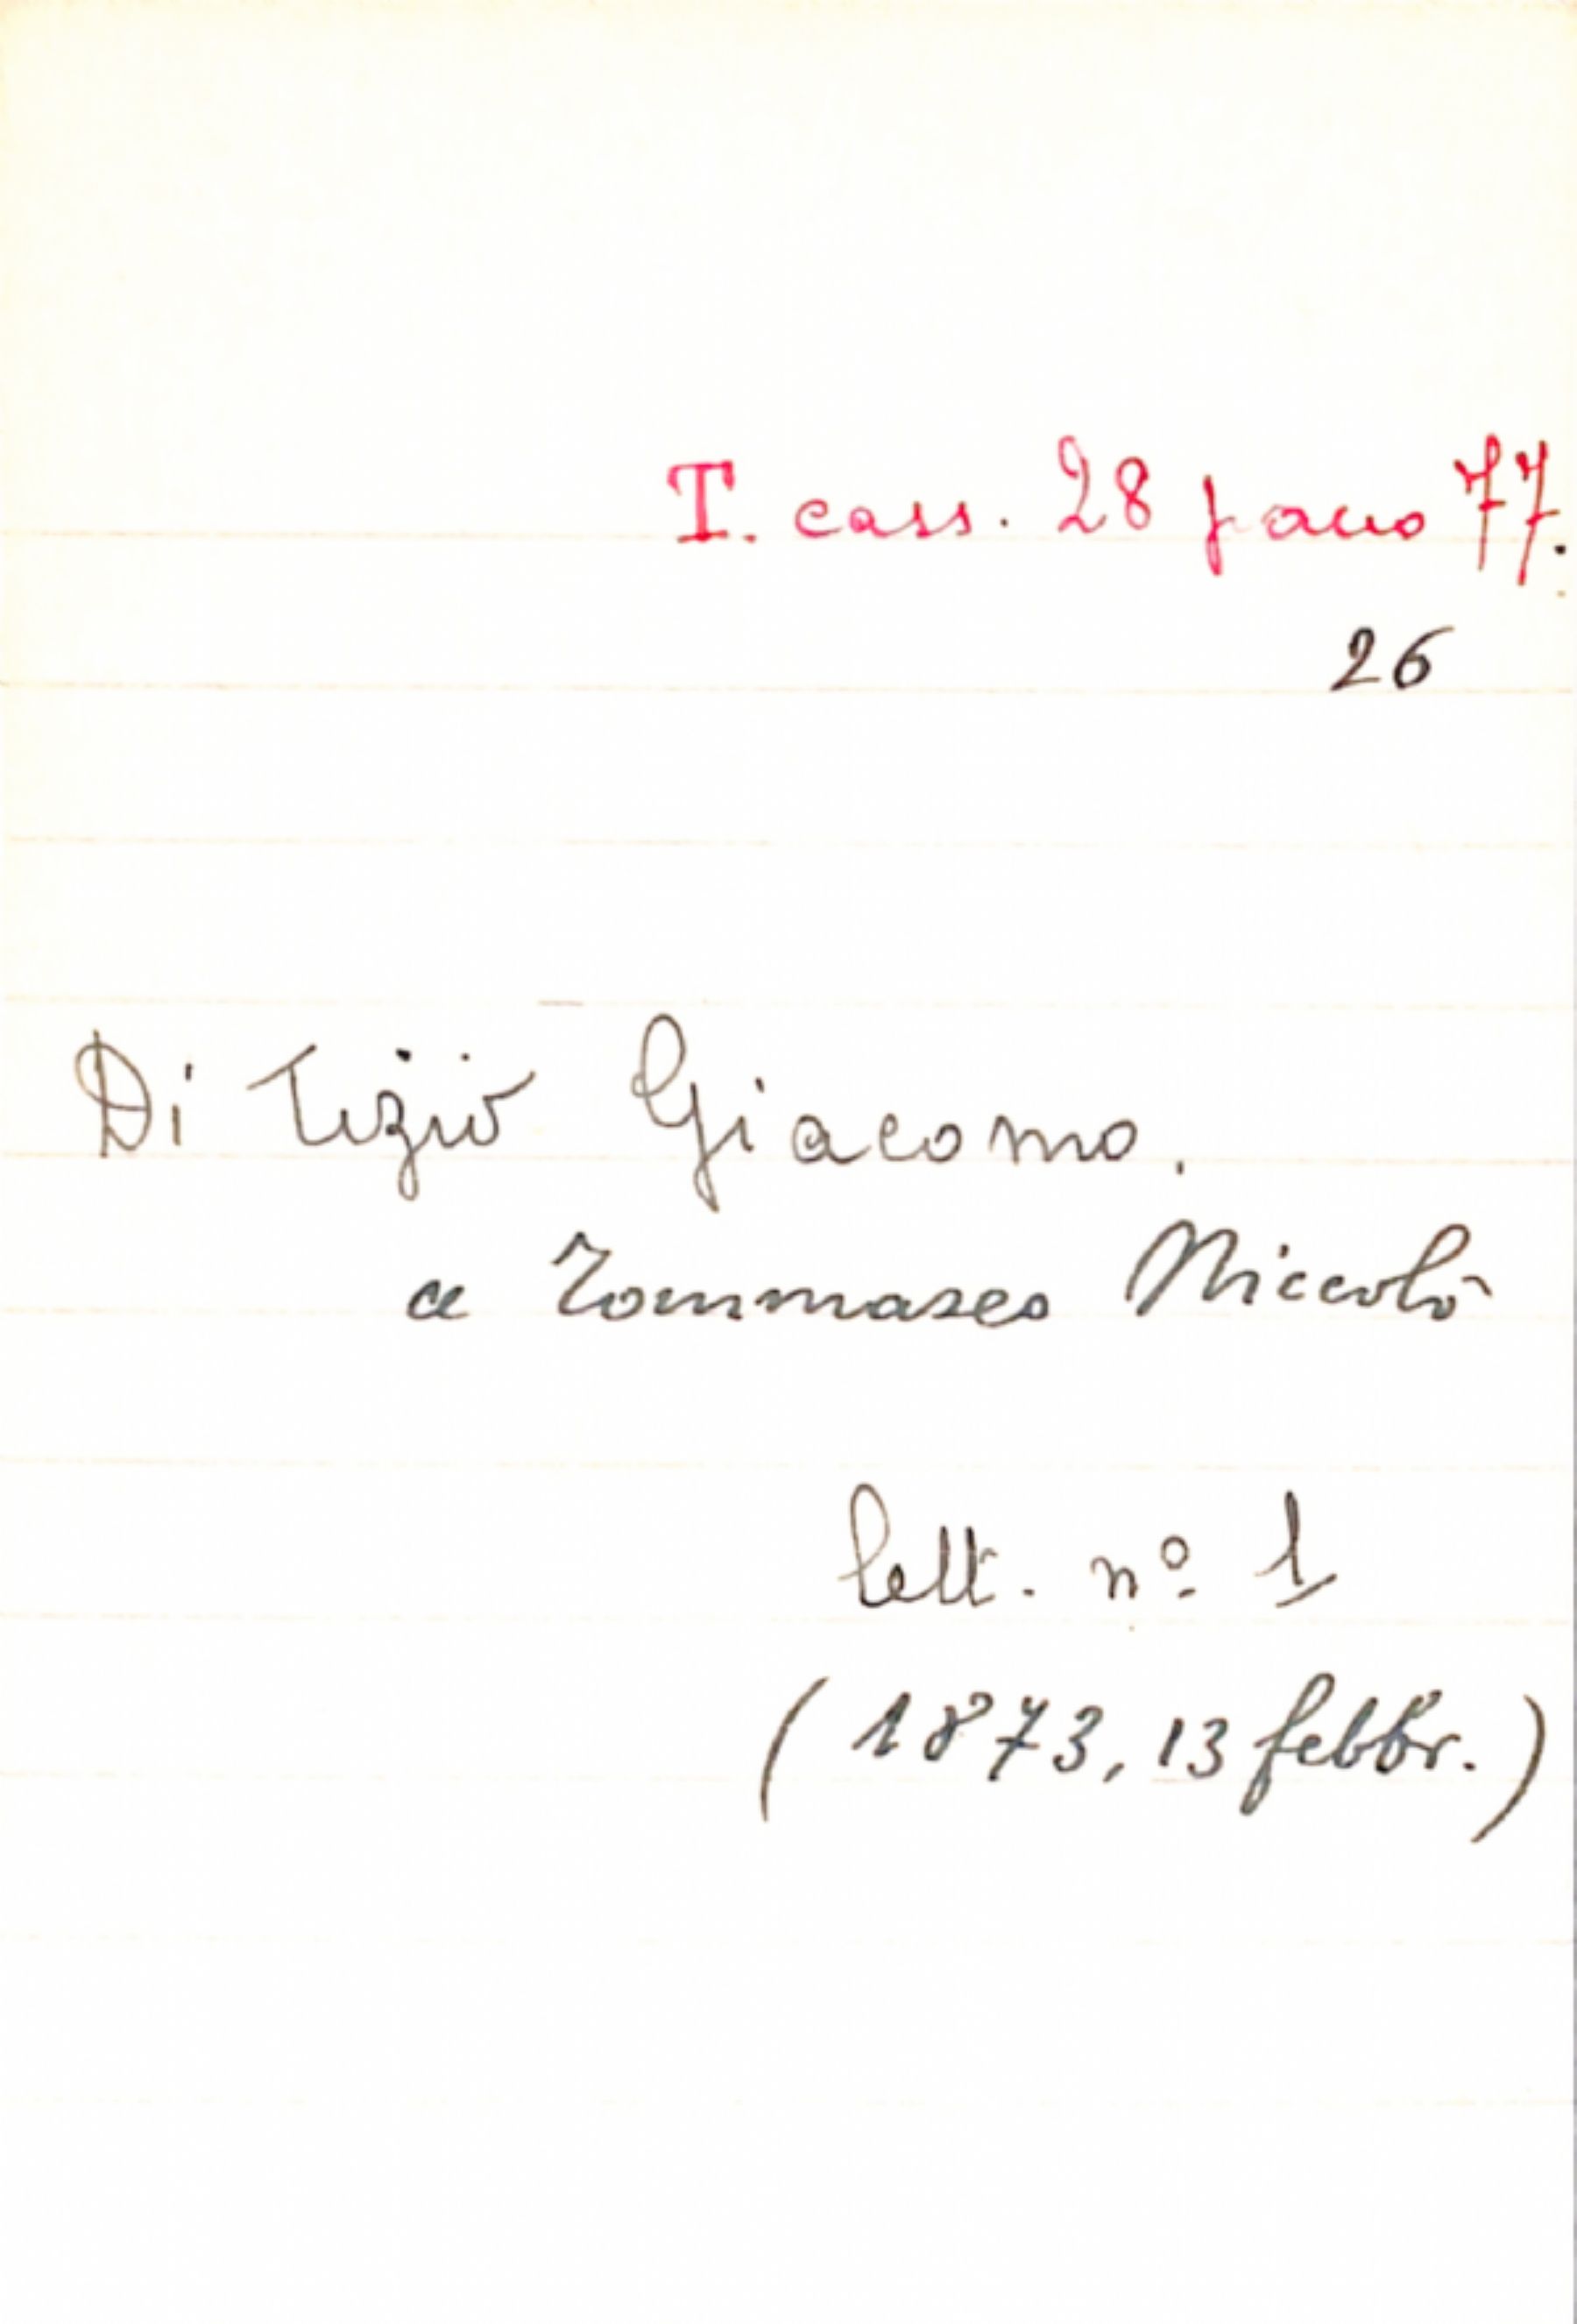 T. cass. 28 pacco 77.
26
Di Tizio Giacomo.
a Tommaseo Niccolò
lett. nº 1
(1873, 13 febbr.)